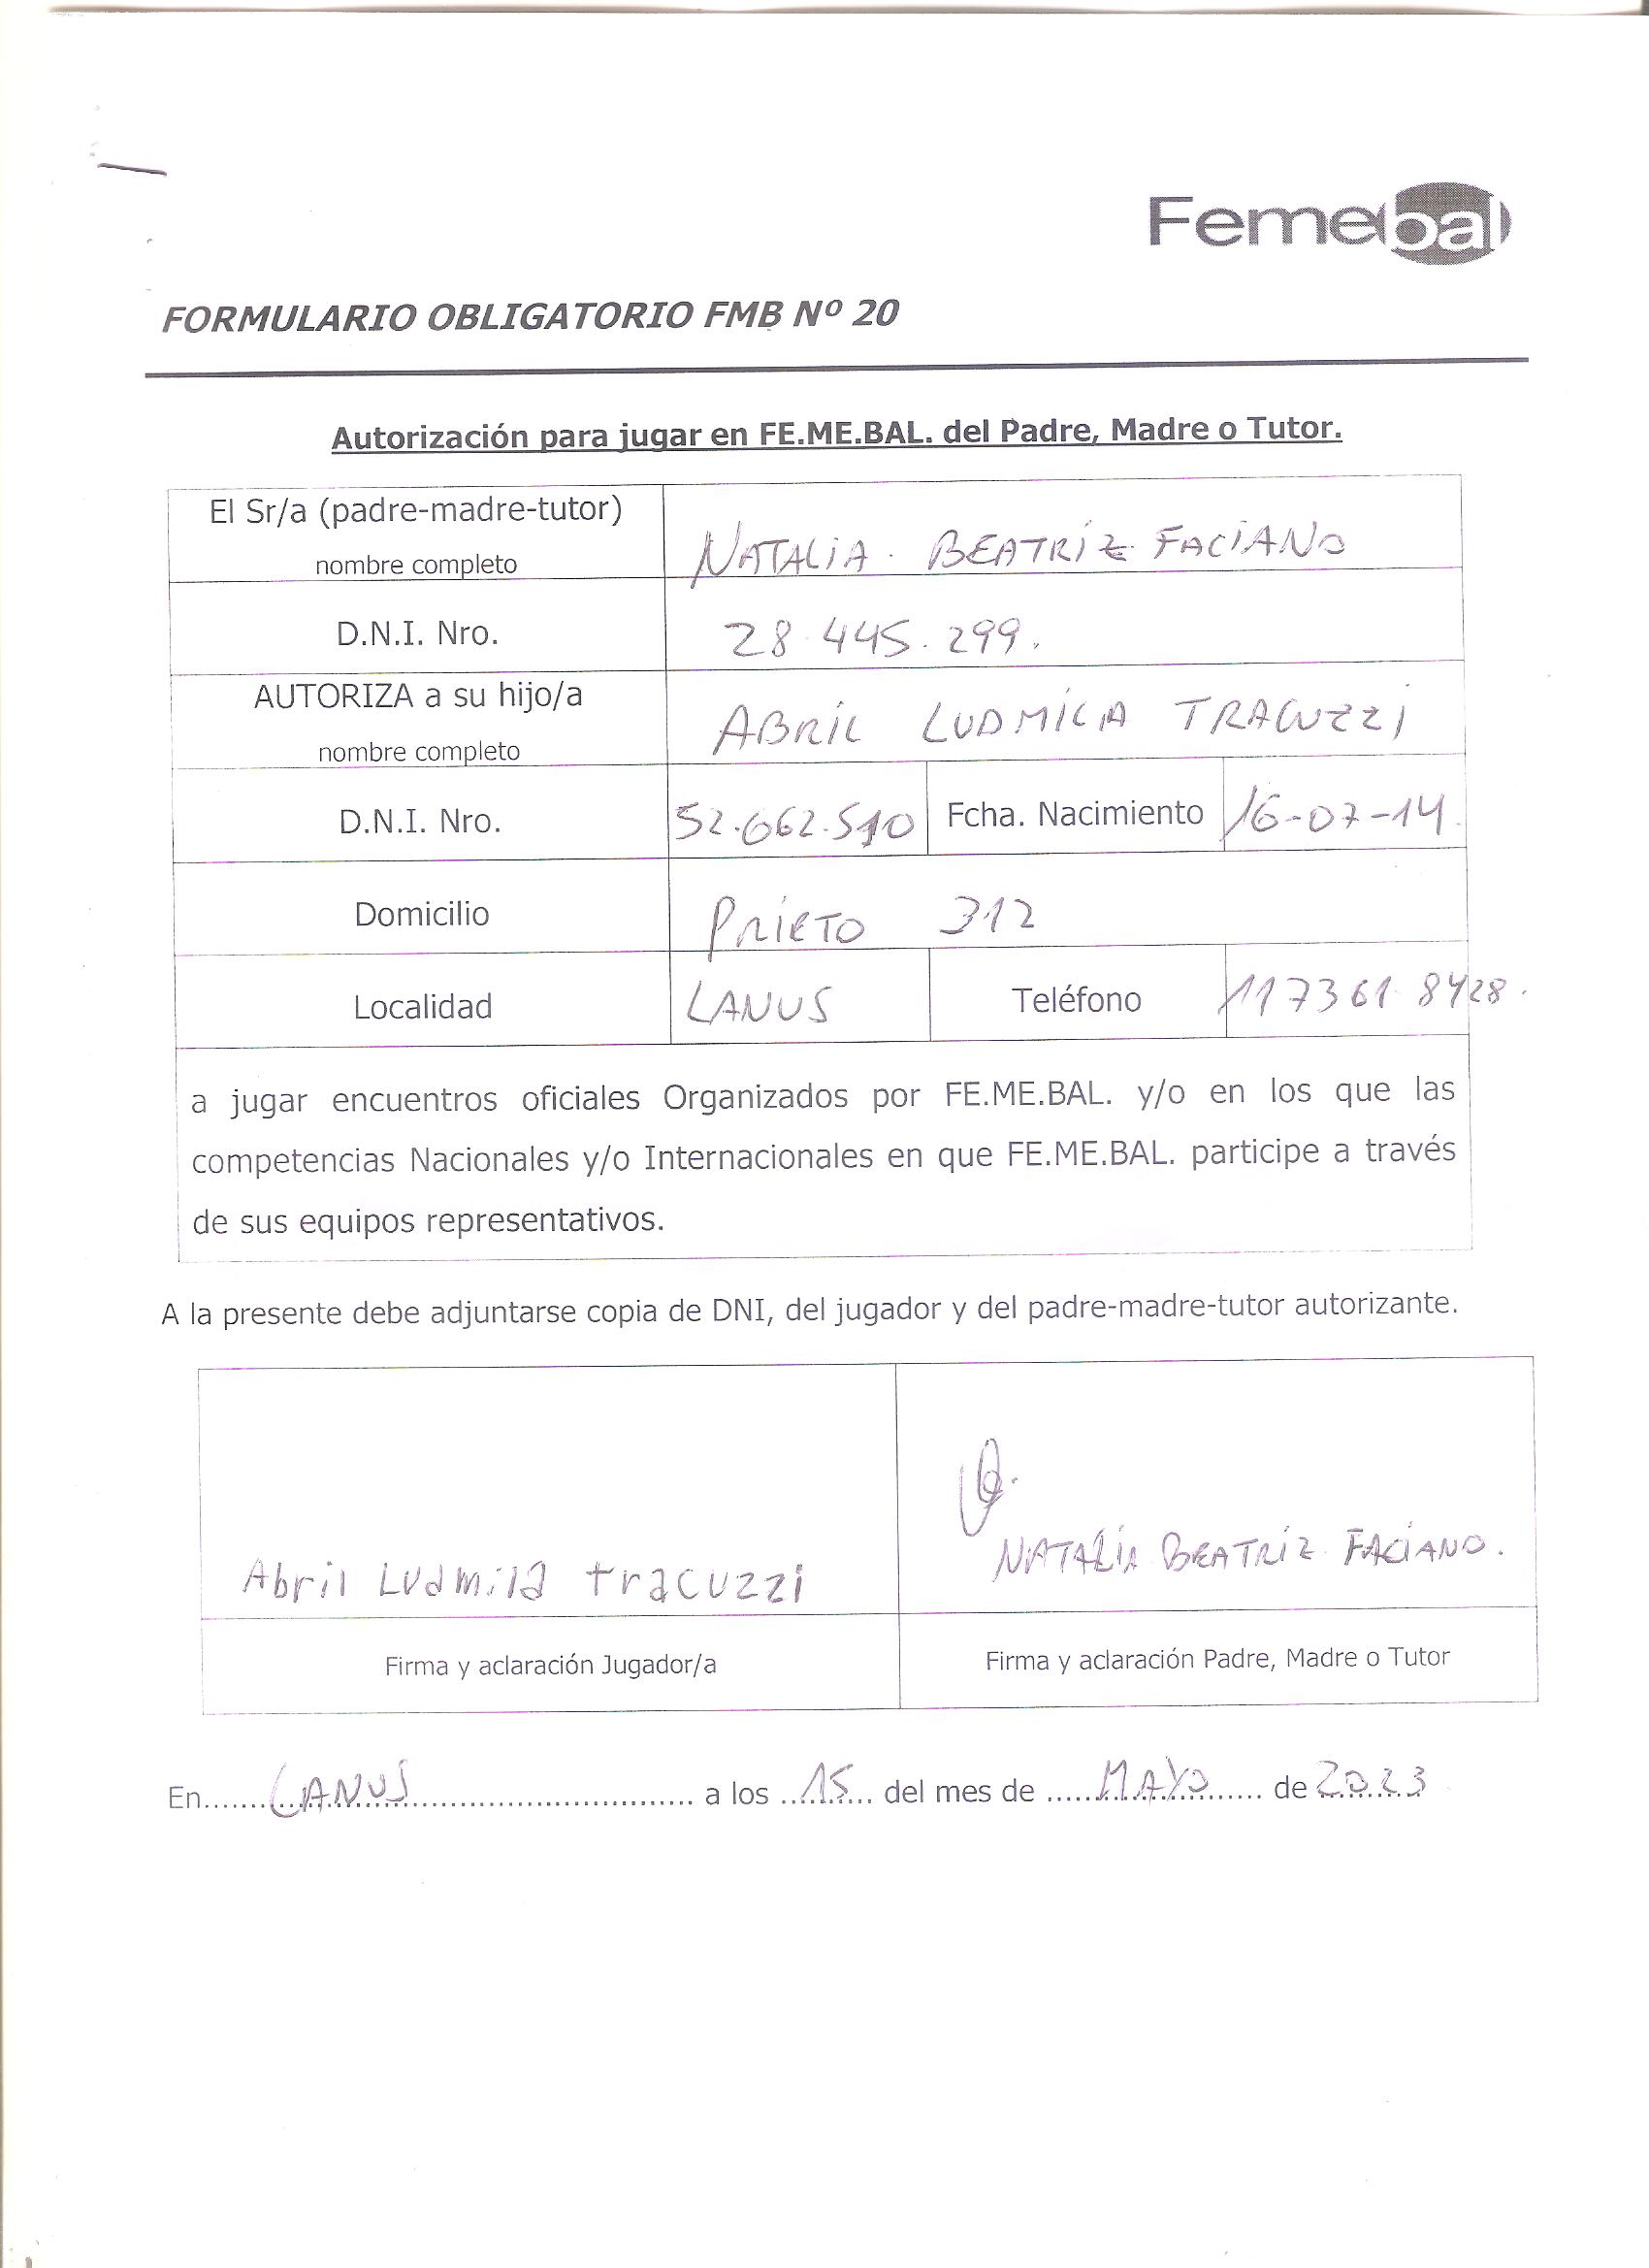 Femebal
FORMULARIO OBLIGATORIO FMB Nº 20
Autorización para jugar en FE.ME.BAL. del Padre, Madre o Tutor.
El Sr/a (padre-madre-tutor)
nombre completo
NATALIA. BEATRIZ FACIANO
D.N.I. Nro.
28.445.299.
AUTORIZA a su hijo/a
nombre completo
ABRIL LUDMILA TRACUZZI
D.N.I. Nro. 52.662.510 Fcha. Nacimiento 16-07-14.
Domicilio PRIETO 312
Localidad LANUS Teléfono 117361 8428.
a jugar encuentros oficiales Organizados por FE.ME.BAL. y/o en los que las
competencias Nacionales y/o Internacionales en que FE.ME.BAL. participe a través
de sus equipos representativos.
A la presente debe adjuntarse copia de DNI, del jugador y del padre-madre-tutor autorizante.
Abril Ludmila tracuzzi
NATALIA BEATRIZ FACIANO.
Firma y aclaración Jugador/a
Firma y aclaración Padre, Madre o Tutor
En LANUS a los 15 del mes de MAYO de 2023